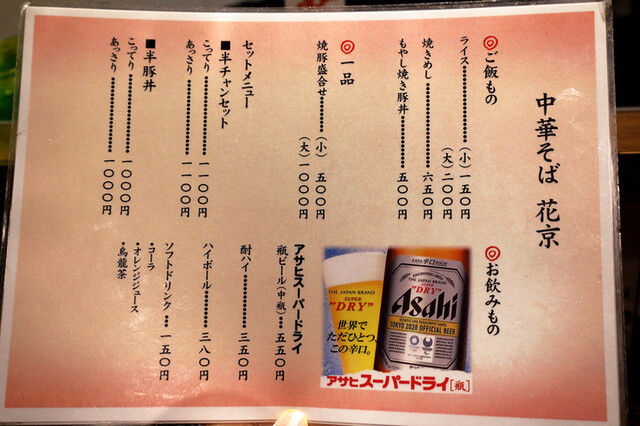 中華そば 花京
◎ご飯もの
ライス……………(小)一五〇円
(大)二〇〇円
焼きめし……………六五〇円
もやし焼き豚丼……………五〇〇円
◎一品
焼豚盛合せ……………(小)五〇〇円
(大)一〇〇〇円
セットメニュー
■半チャンセット
こってり……………一一〇〇円
あっさり……………一一〇〇円
■半豚丼
こってり……………一〇〇〇円
あっさり……………一〇〇〇円
◎お飲みもの
アサヒスーパードライ
瓶ビール(中瓶)…五五〇円
酎ハイ……………三五〇円
ハイボール……………三八〇円
ソフトドリンク……一五〇円
・コーラ
・オレンジジュース
・烏龍茶
THE JAPAN BRAND
SUPER
"DRY"
世界で
ただひとつ、
この辛口。
辛口
SUPER
"DRY"
Asahi
TOKYO 2020 OFFICIAL BEER
アサヒスーパードライ[瓶]